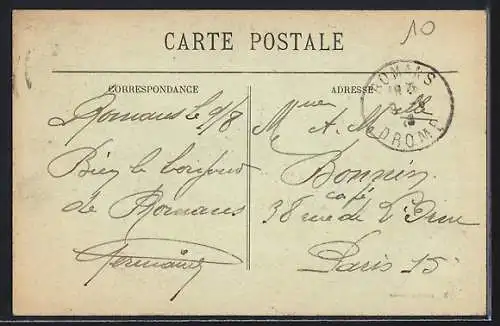 10
CARTE POSTALE
CORRESPONDANCE
ADRESSE
ROMANS
DROME
Romans le 9/8
Bien le bonjour
de Romans
Germaine
Mme A. M
Bonnin
café
38 rue de L'
Paris 15